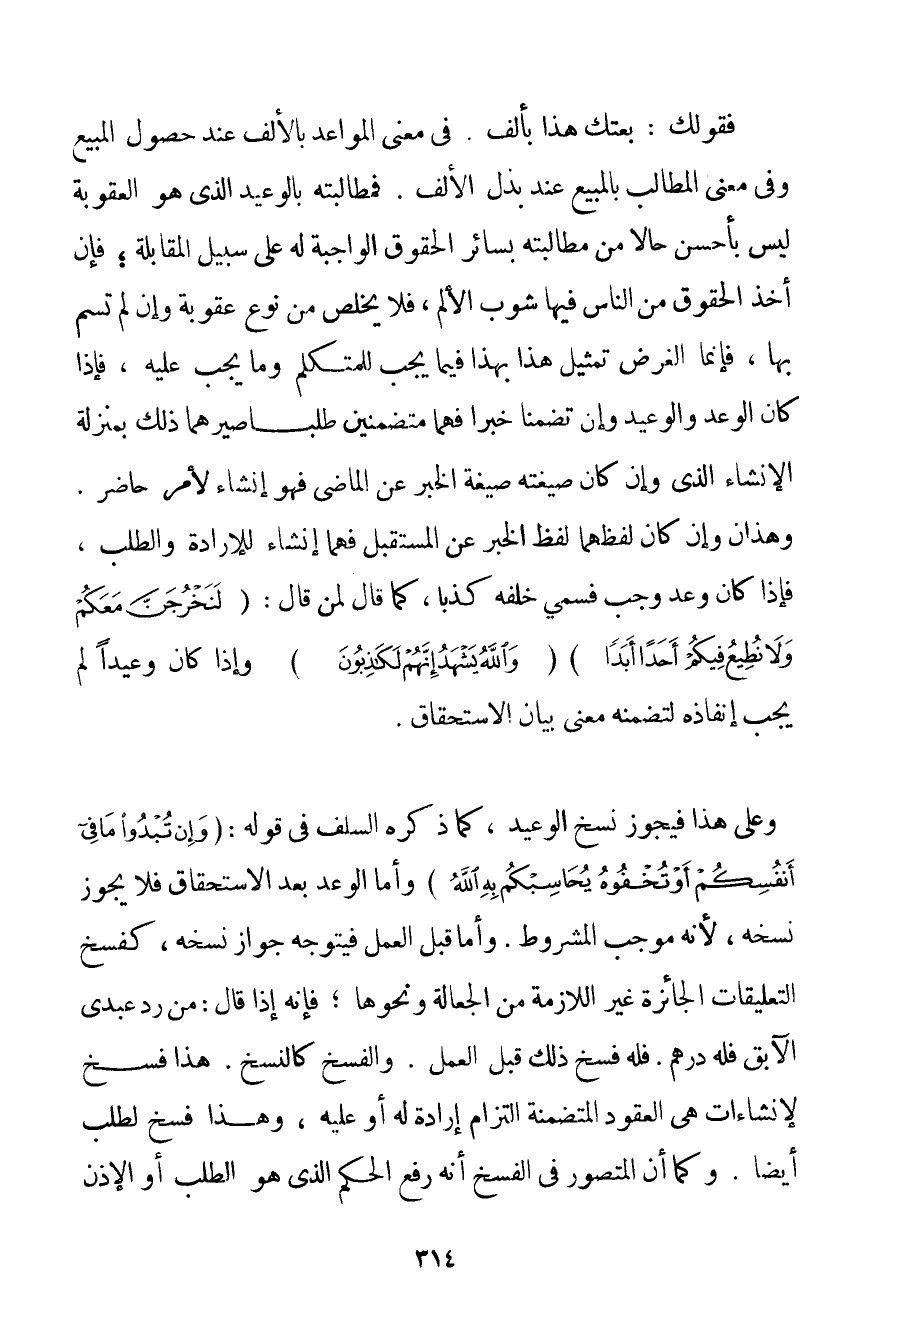 فقولك : بعتك هذا بألف . فى معنى المواعد بالألف عند حصول المبيع
وفى معنى المطالب بالمبيع عند بذل الألف . فمطالبته بالوعيد الذى هو العقوبة
ليس بأحسن حالا من مطالبته بسائر الحقوق الواجبة له على سبيل المقابلة ؛ فإن
أخذ الحقوق من الناس فيها شوب الألم ، فلا يخلص من نوع عقوبة وإن لم تسم
بها ، فإنما الغرض تمثيل هذا بهذا فيما يجب للمتكلم وما يجب عليه ، فإذا
كان الوعد والوعيد وإن تضمنا خبرا فهما متضمنين طلبـــا صيرهما ذلك بمنزلة
الإنشاء الذى وإن كان صيغته صيغة الخبر عن الماضى فهو إنشاء لأمر حاضر .
وهذان وإن كان لفظهما لفظ الخبر عن المستقبل فهما إنشاء للإرادة والطلب ،
فإذا كان وعد وجب فسمي خلفه كذبا ، كما قال لمن قال : ( لَنَخْرُجَنَّ مَعَكُمْ
وَلَا نُطِيعُ فِيكُمْ أَحَدًا أَبَدًا ) ( وَٱللَّهُ يَشْهَدُ إِنَّهُمْ لَكَٰذِبُونَ ) وإذا كان وعيداً لم
يجب إنفاذه لتضمنه معنى بيان الاستحقاق .
وعلى هذا فيجوز نسخ الوعيد ، كما ذكره السلف فى قوله : ( وَإِن تُبْدُوا۟ مَا فِىٓ
أَنفُسِكُمْ أَوْ تُخْفُوهُ يُحَاسِبْكُم بِهِ ٱللَّهُ ) وأما الوعد بعد الاستحقاق فلا يجوز
نسخه ، لأنه موجب المشروط . وأما قبل العمل فيتوجه جواز نسخه ، كفسخ
التعليقات الجائزة غير اللازمة من الجعالة ونحوها ؛ فإنه إذا قال : من رد عبدى
الآبق فله درهم . فله فسخ ذلك قبل العمل . والفسخ كالنسخ . هذا فســـخ
لإنشاءات هى العقود المتضمنة التزام إرادة له أو عليه ، وهـــذا فسخ لطلب
أيضا . وكما أن المتصور فى الفسخ أنه رفع الحكم الذى هو الطلب أو الإذن
٣١٤